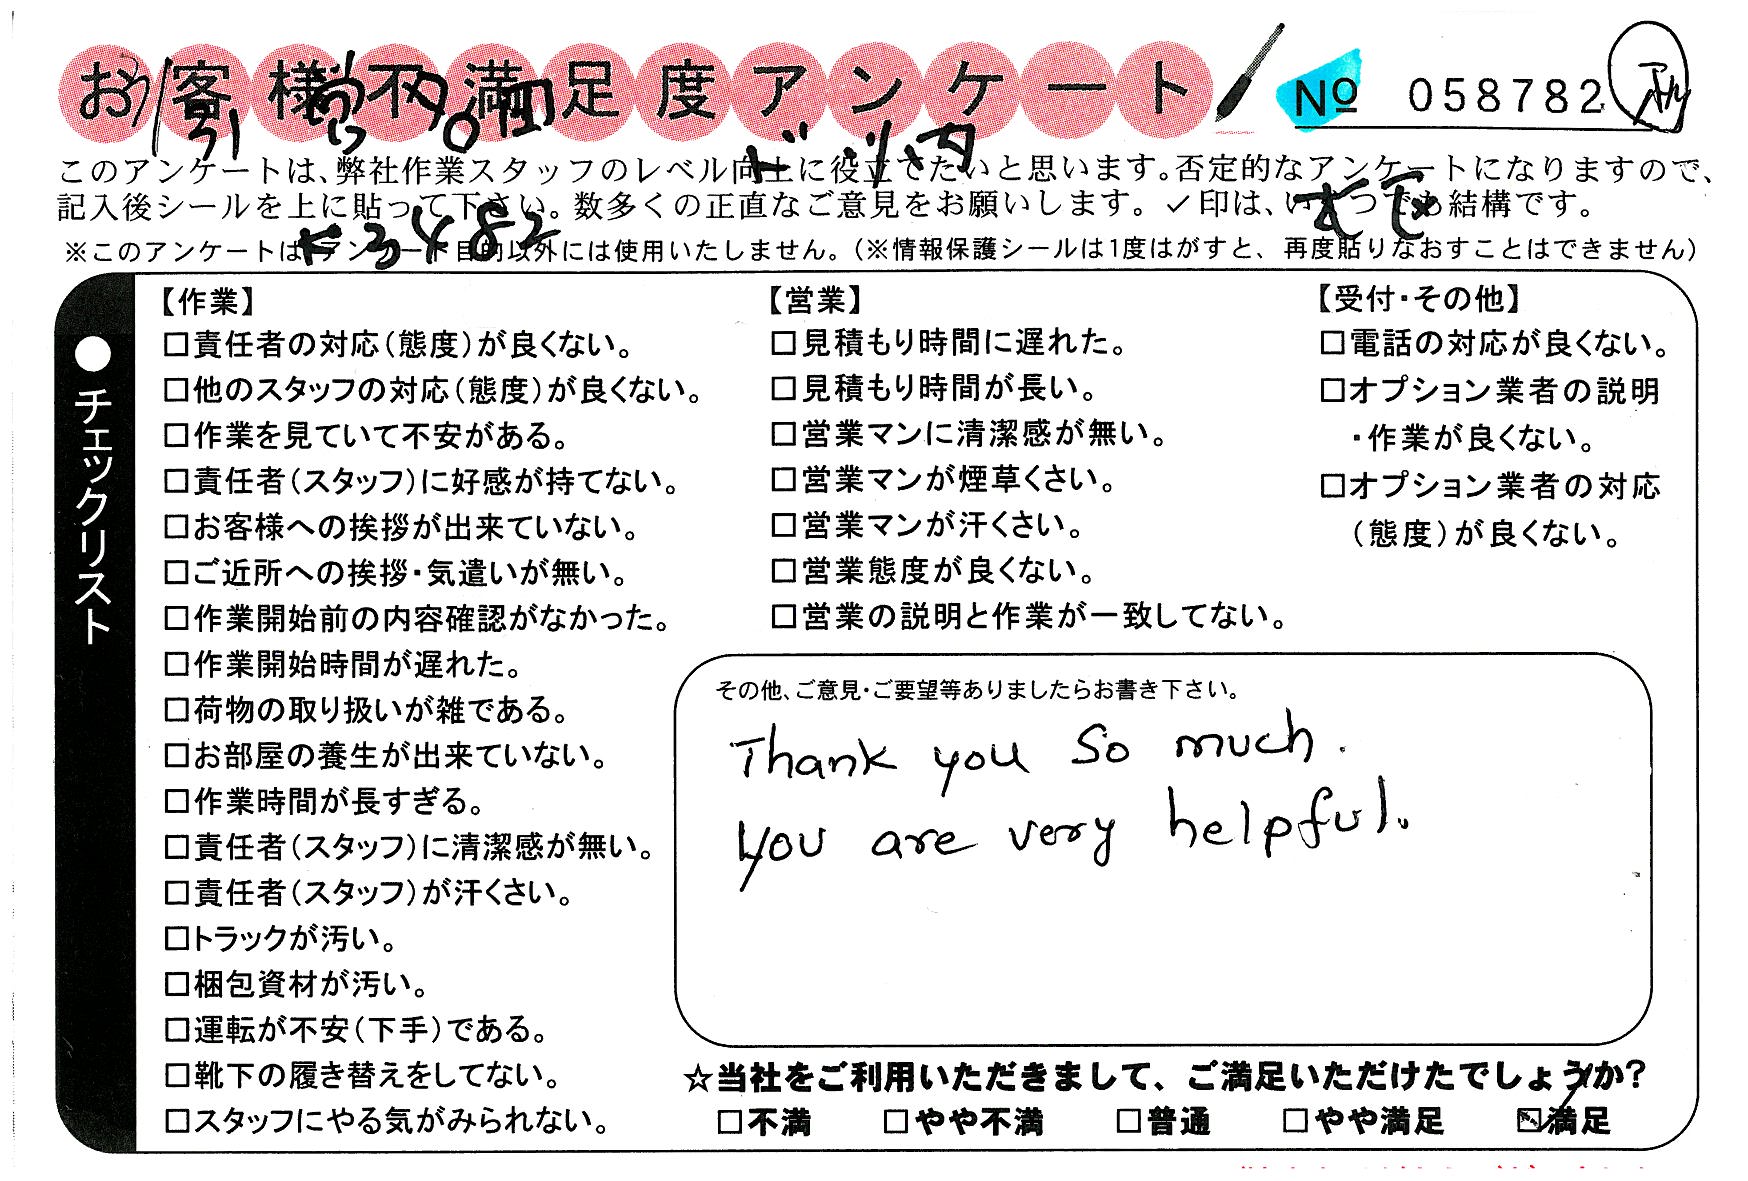 お客様不満足度アンケート
№ 058782
このアンケートは、弊社作業スタッフのレベル向上に役立てたいと思います。否定的なアンケートになりますので、
記入後シールを上に貼って下さい。数多くの正直なご意見をお願いします。✓印は、いくつでも結構です。
※このアンケートはアンケート目的以外には使用いたしません。(※情報保護シールは1度はがすと、再度貼りなおすことはできません)
●チェックリスト
【作業】
□責任者の対応(態度)が良くない。
□他のスタッフの対応(態度)が良くない。
□作業を見ていて不安がある。
□責任者(スタッフ)に好感が持てない。
□お客様への挨拶が出来ていない。
□ご近所への挨拶・気遣いが無い。
□作業開始前の内容確認がなかった。
□作業開始時間が遅れた。
□荷物の取り扱いが雑である。
□お部屋の養生が出来ていない。
□作業時間が長すぎる。
□責任者(スタッフ)に清潔感が無い。
□責任者(スタッフ)が汗くさい。
□トラックが汚い。
□梱包資材が汚い。
□運転が不安(下手)である。
□靴下の履き替えをしてない。
□スタッフにやる気がみられない。
【営業】
□見積もり時間に遅れた。
□見積もり時間が長い。
□営業マンに清潔感が無い。
□営業マンが煙草くさい。
□営業マンが汗くさい。
□営業態度が良くない。
□営業の説明と作業が一致してない。
【受付・その他】
□電話の対応が良くない。
□オプション業者の説明
・作業が良くない。
□オプション業者の対応
(態度)が良くない。
その他、ご意見・ご要望等ありましたらお書き下さい。
Thank you so much.
you are very helpful.
☆当社をご利用いただきまして、ご満足いただけたでしょうか?
□不満 □やや不満 □普通 □やや満足 ☑満足